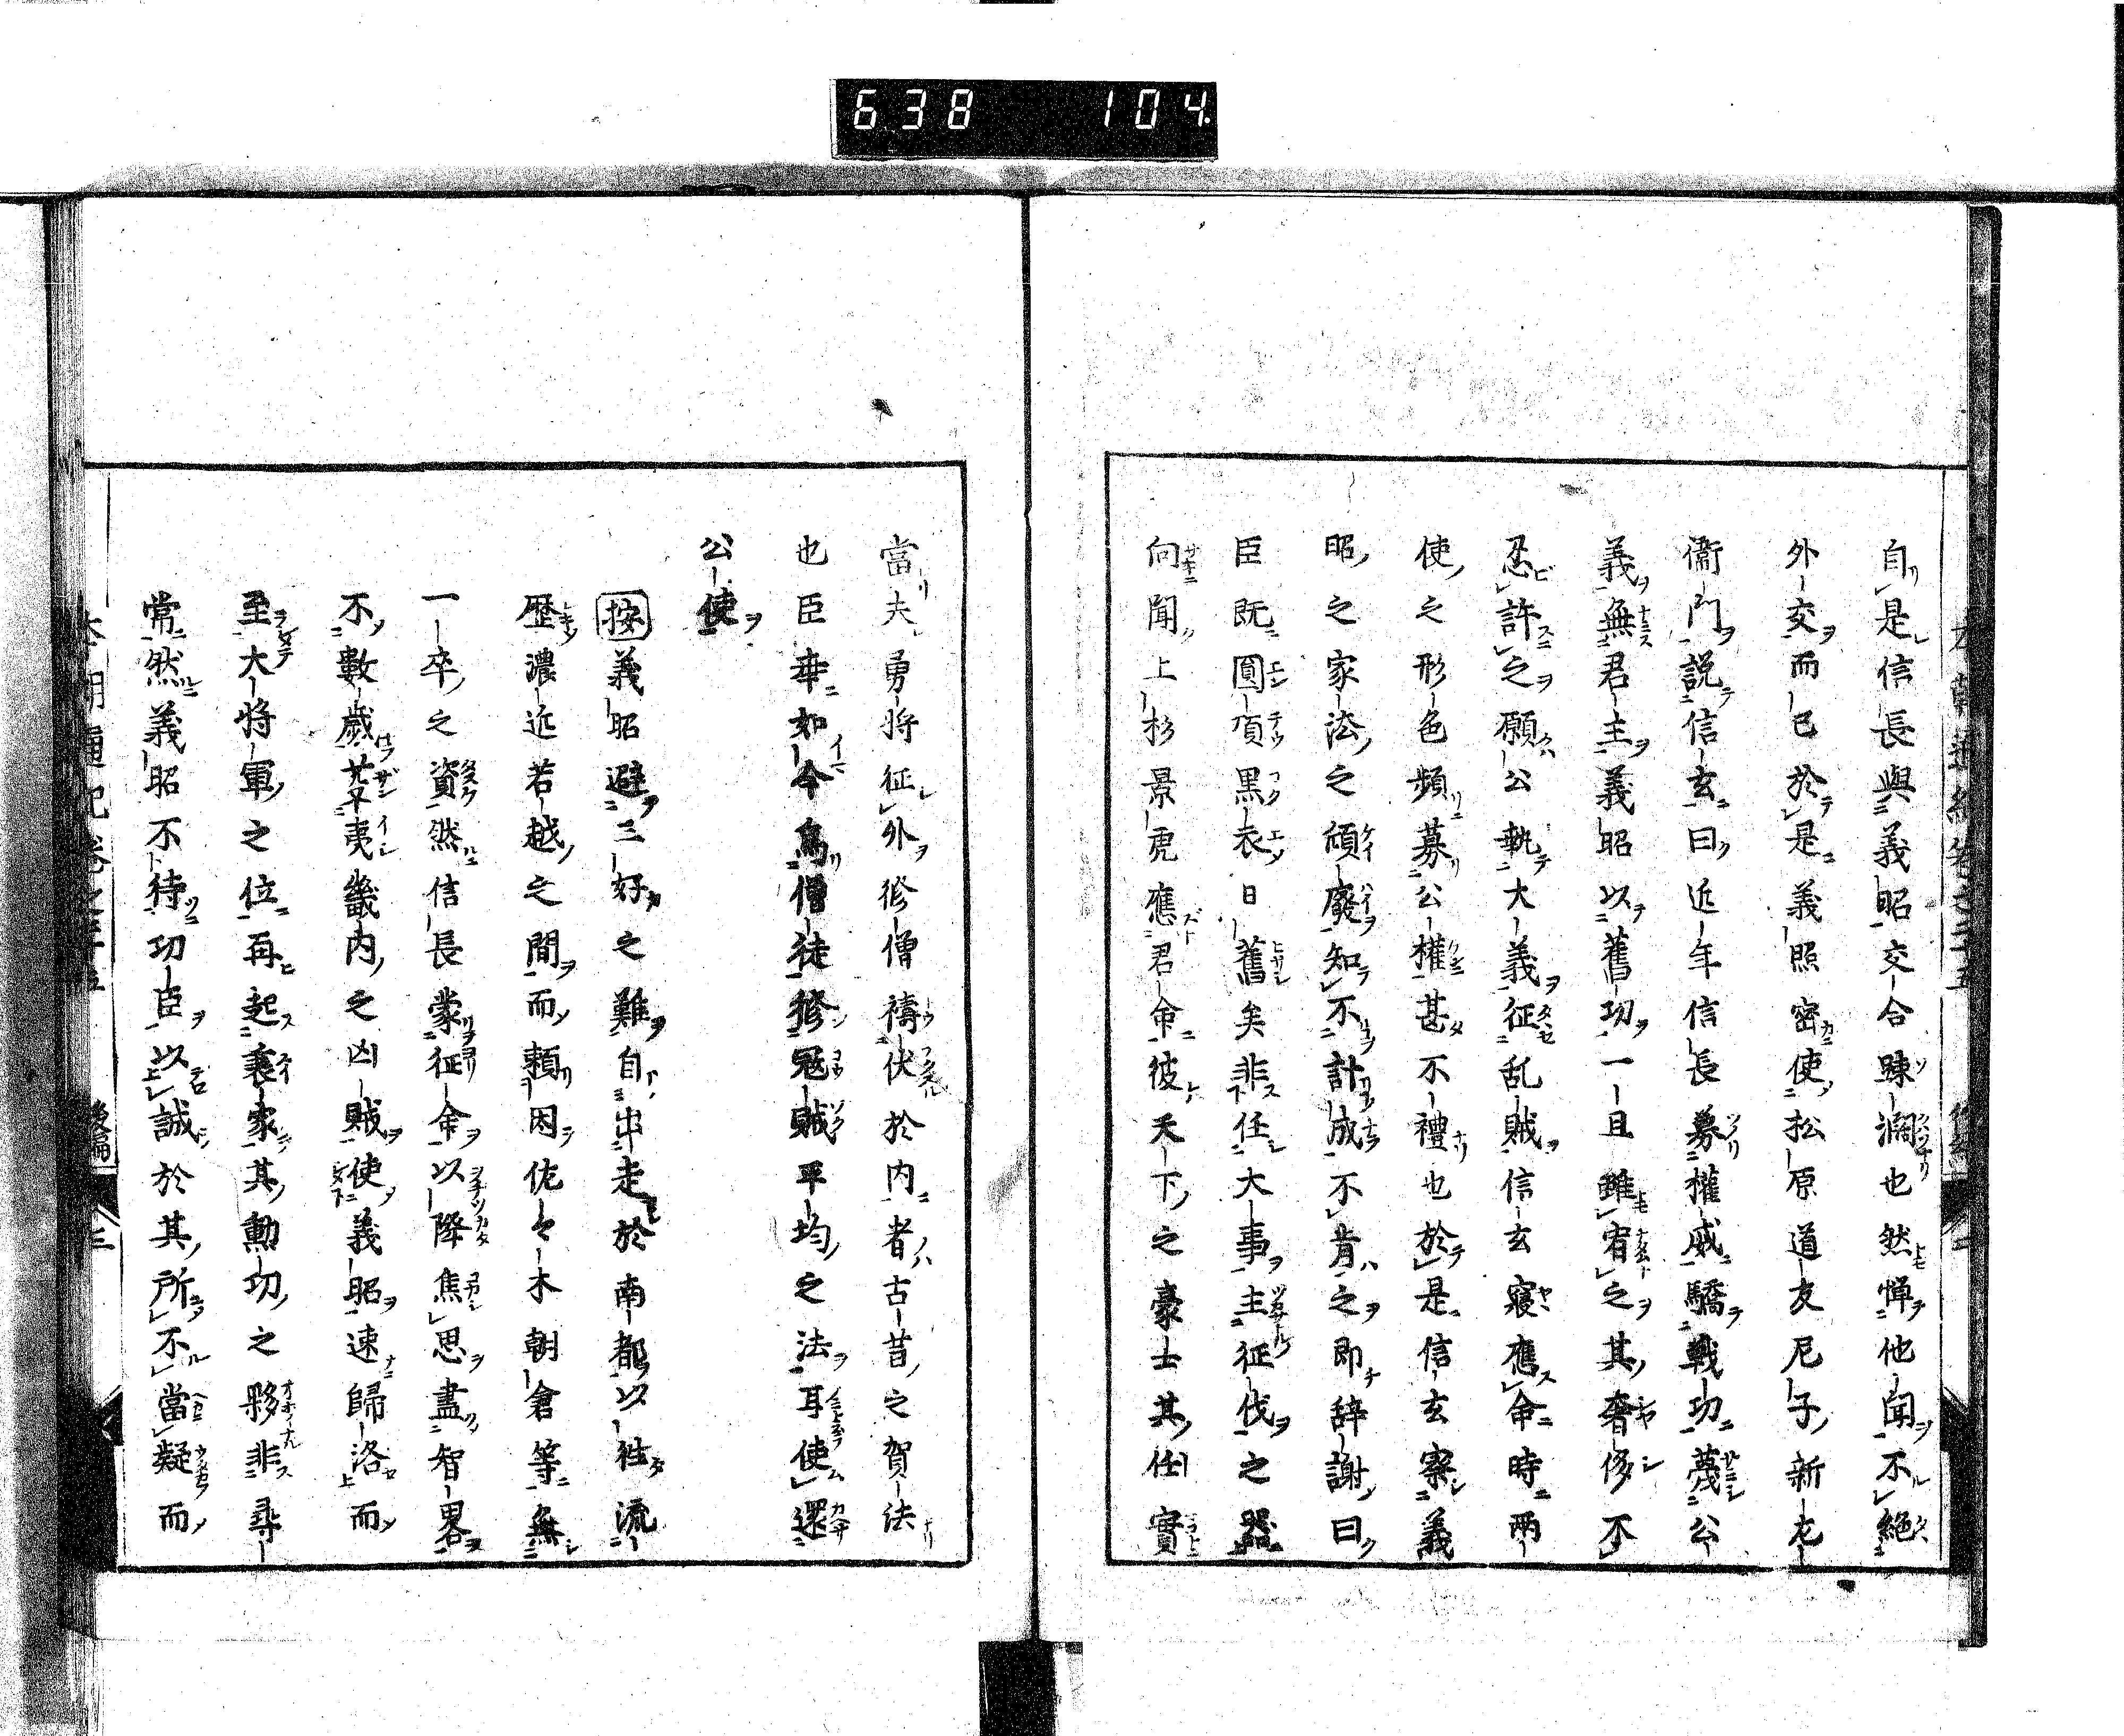 638 104
自是信長與義昭交合踈濶也然憚他聞不絶
外交而已於是義照密使松原道友尼子新左
衞門説信玄曰近年信長募權威驕戰功蔑公
義無君主義昭以舊功一旦雖宥之其奢侈不
忍許之願公執大義征乱賊信玄寢應命時兩
使之形色頻募公權甚不禮也於是信玄察義
昭之家法之頽廢知不計成不肯之即辞謝曰
臣既圓頂黒衣日舊矣非任大事主征伐之器
向聞上杉景虎應君命彼天下之豪士其任實
當夫勇将征外修僧禱伏於内者古昔之賀法
也臣幸如今爲僧徒修冦賊平均之法耳使還
公使
按義昭避三好之難自出走於南都以徃流
歴濃近若越之間而頼因佐々木朝倉等無
一卒之資然信長蒙征命以降焦思盡智畧
不數歳芟夷畿内之凶賊使義昭速歸洛而
至大将軍之位再起衰家其勳功之夥非尋
常然義昭不待功臣以誠於其所不當疑而
本朝通紀卷之二十五 後編 三